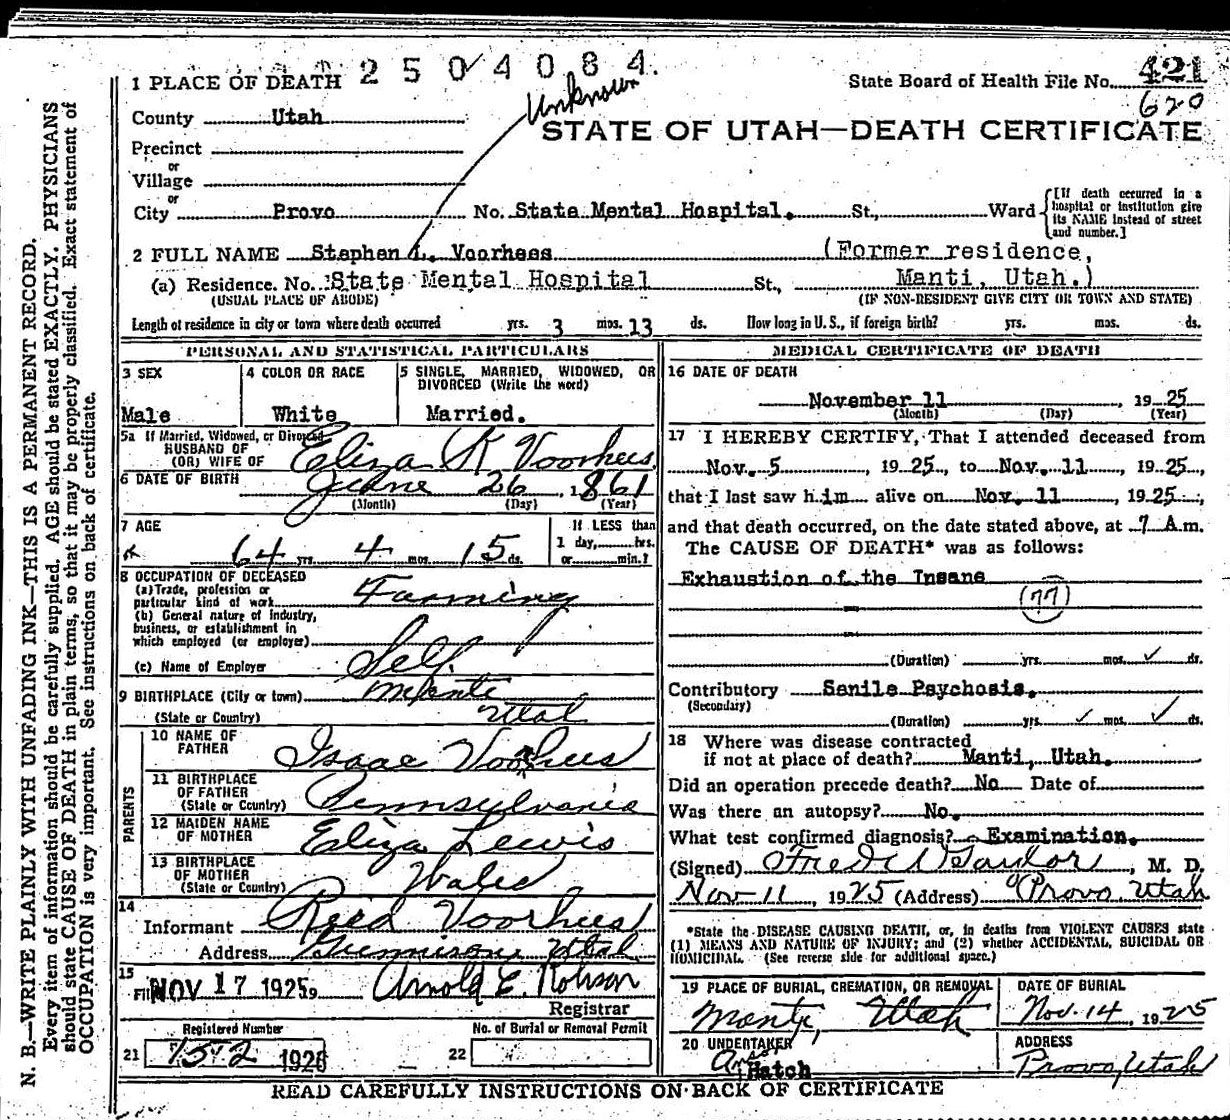 2504084.
Unknown
State Board of Health File No. 421
620
STATE OF UTAH—DEATH CERTIFICATE
1 PLACE OF DEATH
County Utah
Precinct
or
Village
or
City Provo No. State Mental Hospital. St., Ward
[If death occurred in a hospital or institution give its NAME instead of street and number.]
2 FULL NAME Stephen L. Voorhees (Former residence,
(a) Residence. No. State Mental Hospital St., Manti, Utah.)
(USUAL PLACE OF ABODE) (IF NON-RESIDENT GIVE CITY OR TOWN AND STATE)
Length of residence in city or town where death occurred yrs. 3 mos. 13 ds. How long in U. S., if foreign birth? yrs. mos. ds.
PERSONAL AND STATISTICAL PARTICULARS
3 SEX
Male
4 COLOR OR RACE
White
5 SINGLE, MARRIED, WIDOWED, OR
DIVORCED (Write the word)
Married.
5a If Married, Widowed, or Divorced
HUSBAND OF
(OR) WIFE OF Eliza K Voorhees
6 DATE OF BIRTH June 26, 1861
(Month) (Day) (Year)
7 AGE
64 yrs. 4 mos. 15 ds.
If LESS than
1 day, hrs.
or min.?
8 OCCUPATION OF DECEASED
(a) Trade, profession or
particular kind of work Farming
(b) General nature of industry,
business, or establishment in
which employed (or employer)
(c) Name of Employer Self
9 BIRTHPLACE (City or town) Manti
(State or Country) Utah
PARENTS
10 NAME OF
FATHER Isaac Voorhees
11 BIRTHPLACE
OF FATHER
(State or Country) Pennsylvania
12 MAIDEN NAME
OF MOTHER Eliza Lewis
13 BIRTHPLACE
OF MOTHER
(State or Country) Wales
14
Informant Reed Voorhees
Address Gunnison Utah
15
Filed NOV 17 1925 Arnold E. Robison
Registrar
Registered Number
21 152 1926
No. of Burial or Removal Permit
22
MEDICAL CERTIFICATE OF DEATH
16 DATE OF DEATH
November 11, 1925
(Month) (Day) (Year)
17 I HEREBY CERTIFY, That I attended deceased from
Nov. 5, 1925, to Nov. 11, 1925,
that I last saw him alive on Nov. 11, 1925,
and that death occurred, on the date stated above, at 7 A.m.
The CAUSE OF DEATH* was as follows:
Exhaustion of the Insane
(77)
(Duration) yrs. mos. ds.
Contributory Senile Psychosis.
(Secondary)
(Duration) yrs. mos. ds.
18 Where was disease contracted
if not at place of death? Manti, Utah.
Did an operation precede death? No Date of
Was there an autopsy? No.
What test confirmed diagnosis? Examination.
(Signed) Fred, M. D.
Nov-11, 1925 (Address) Provo, Utah
*State the DISEASE CAUSING DEATH, or, in deaths from VIOLENT CAUSES state
(1) MEANS AND NATURE OF INJURY; and (2) whether ACCIDENTAL, SUICIDAL OR
HOMICIDAL. (See reverse side for additional space.)
19 PLACE OF BURIAL, CREMATION, OR REMOVAL
Manti, Utah
DATE OF BURIAL
Nov. 14, 1925
20 UNDERTAKER
Hatch
ADDRESS
Provo, Utah
READ CAREFULLY INSTRUCTIONS ON BACK OF CERTIFICATE
N. B.—WRITE PLAINLY WITH UNFADING INK—THIS IS A PERMANENT RECORD.
Every item of information should be carefully supplied. AGE should be stated EXACTLY. PHYSICIANS
should state CAUSE OF DEATH in plain terms, so that it may be properly classified. Exact statement of
OCCUPATION is very important. See instructions on back of certificate.